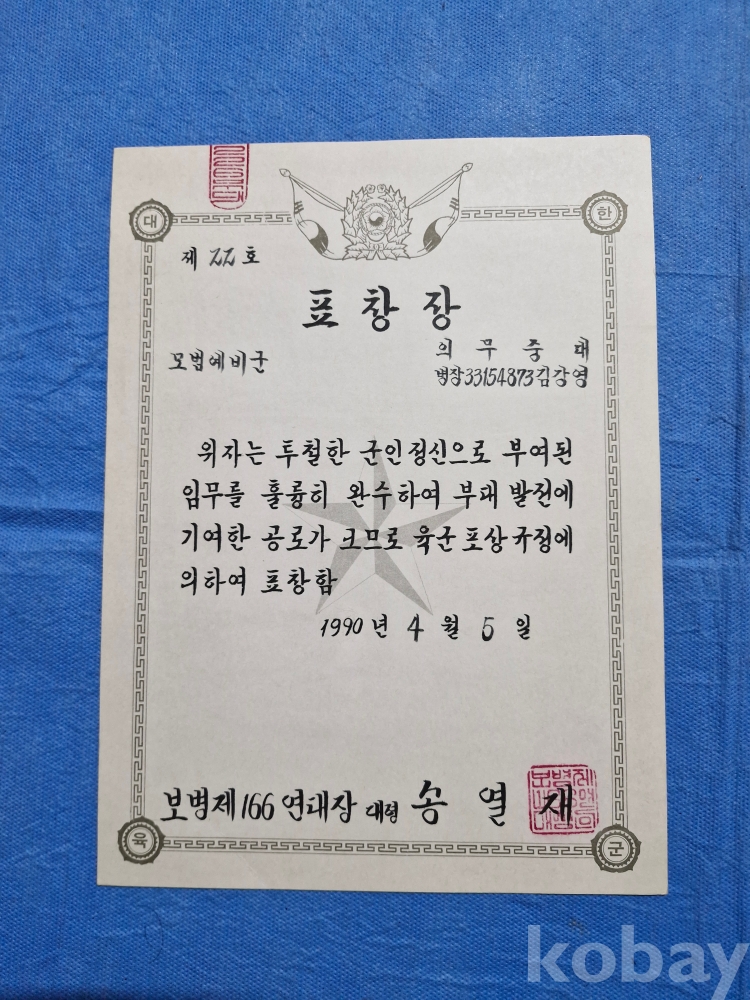 대 한
제 22 호
표 창 장
모범예비군
의 무 중 대
병장 33154873 김강영
위자는 투철한 군인정신으로 부여된
임무를 훌륭히 완수하여 부대 발전에
기여한 공로가 크므로 육군 포상규정에
의하여 표창함
1990 년 4 월 5 일
보병제166연대장 대령 송 열 재
육 군
kobay